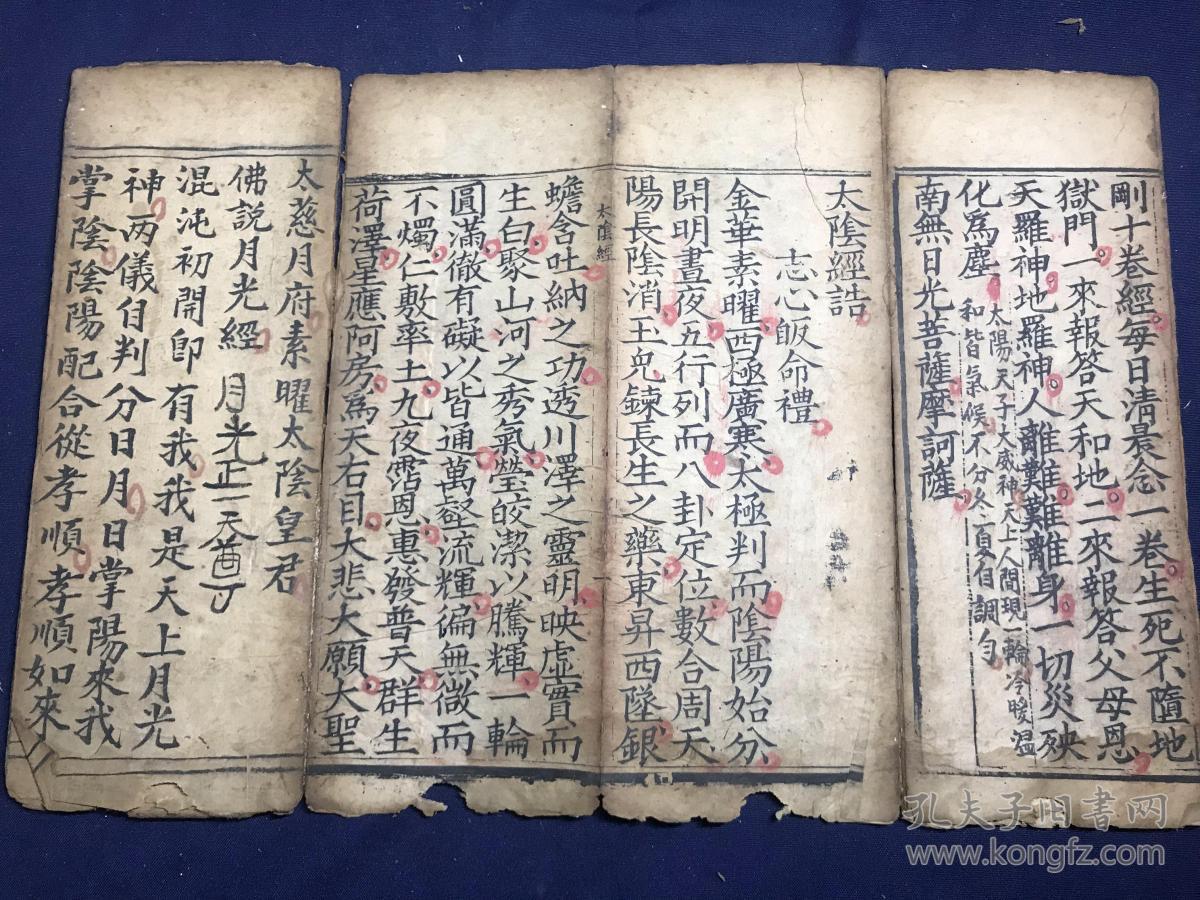 剛十卷經每日清晨念一卷生死不墮地
獄門一來報答天和地二來報答父母恩
天羅神地羅神人離難難離身一切災殃
化為塵
太陽天子大威神天上人間現一輪冷暖溫
和皆氣候不分冬夏自調勻
南無日光菩薩摩訶薩
太陰經誥
志心皈命禮
金華素曜西極廣寒太極判而陰陽始分
開明晝夜五行列而八卦定位數合周天
陽長陰消玉兔鍊長生之藥東昇西墜銀
太陰經
蟾含吐納之功透川澤之靈明映虛實而
生白聚山河之秀氣瑩皎潔以騰輝一輪
圓滿徹有礙以皆通萬壑流輝徧無微而
不燭仁敷率土九夜霑恩惠發普天群生
荷澤星應阿房為天右目大悲大願大聖
太慈月府素曜太陰皇君
佛說月光經
月光正天尊
混沌初開即有我我是天上月光
神兩儀自判分日月日掌陽來我
掌陰陰陽配合從孝順孝順如來
孔夫子旧书网
www.kongfz.com